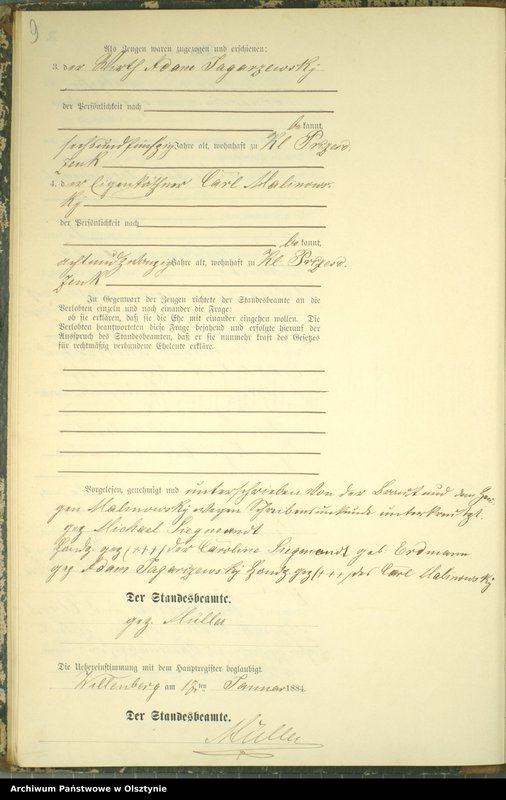 9
Als Zeugen waren zugezogen und erschienen:
3. der Wirth Adam Sagarzewsky
der Persönlichkeit nach
be kannt,
sechsundfünfzig Jahre alt, wohnhaft zu Kl Przesd
zenk
4. der Eigenkäthner Carl Malinows-
ky
der Persönlichkeit nach
be kannt,
achtundzwanzig Jahre alt, wohnhaft zu Kl Przesd.
zenk
In Gegenwart der Zeugen richtete der Standesbeamte an die
Verlobten einzeln und nach einander die Frage:
ob sie erklären, daß sie die Ehe mit einander eingehen wollen. Die
Verlobten beantworteten diese Frage bejahend und erfolgte hierauf der
Ausspruch des Standesbeamten, daß er sie nunmehr kraft des Gesetzes
für rechtmäßig verbundene Eheleute erkläre.
Vorgelesen, genehmigt und unterschrieben von der Braut und dem Zeu-
gen Malinowsky wegen Schreibensunkunde unterkreuzt.
gez Michael Siegmundt
Handz. gez (+++) der Caroline Siegmundt geb Erdmann
gez Adam Sagarzewsky Handz. gez (+++) des Carl Malinowsky
Der Standesbeamte.
gez. Müller
Die Uebereinstimmung mit dem Hauptregister beglaubigt.
Willenberg am 17ten Januar 1884.
Der Standesbeamte.
Müller
Archiwum Państwowe w Olsztynie